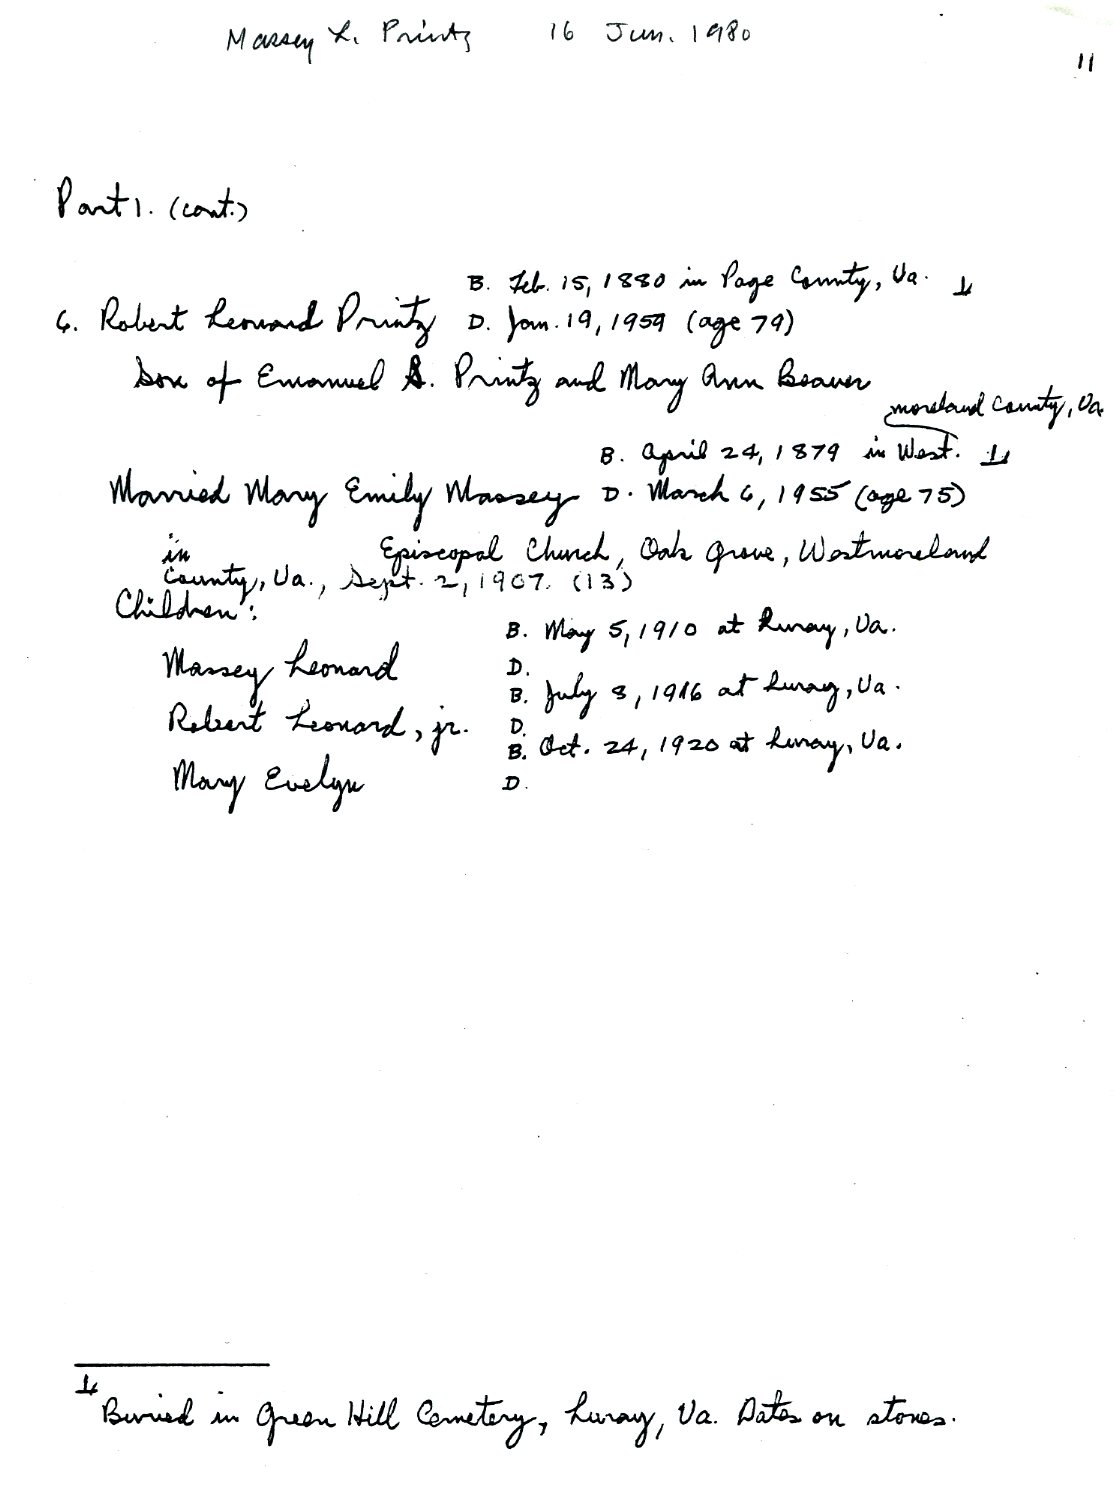 Massey L. Printz 16 Jun. 1980
11
Part 1. (cont.)
B. Feb. 15, 1880 in Page County, Va. 1/
6. Robert Leonard Printz D. Jan. 19, 1959 (age 79)
Son of Emanuel S. Printz and Mary Ann Beaver
moreland County, Va.
B. April 24, 1879 in West. 1/
Married Mary Emily Massey D. March 6, 1955 (age 75)
in Episcopal Church, Oak Grove, Westmoreland
County, Va., Sept. 2, 1907. (13)
Children:
B. May 5, 1910 at Luray, Va.
Massey Leonard D.
B. July 8, 1916 at Luray, Va.
Robert Leonard, jr. D.
B. Oct. 24, 1920 at Luray, Va.
Mary Evelyn D.
1/
Buried in Green Hill Cemetery, Luray, Va. Dates on stones.